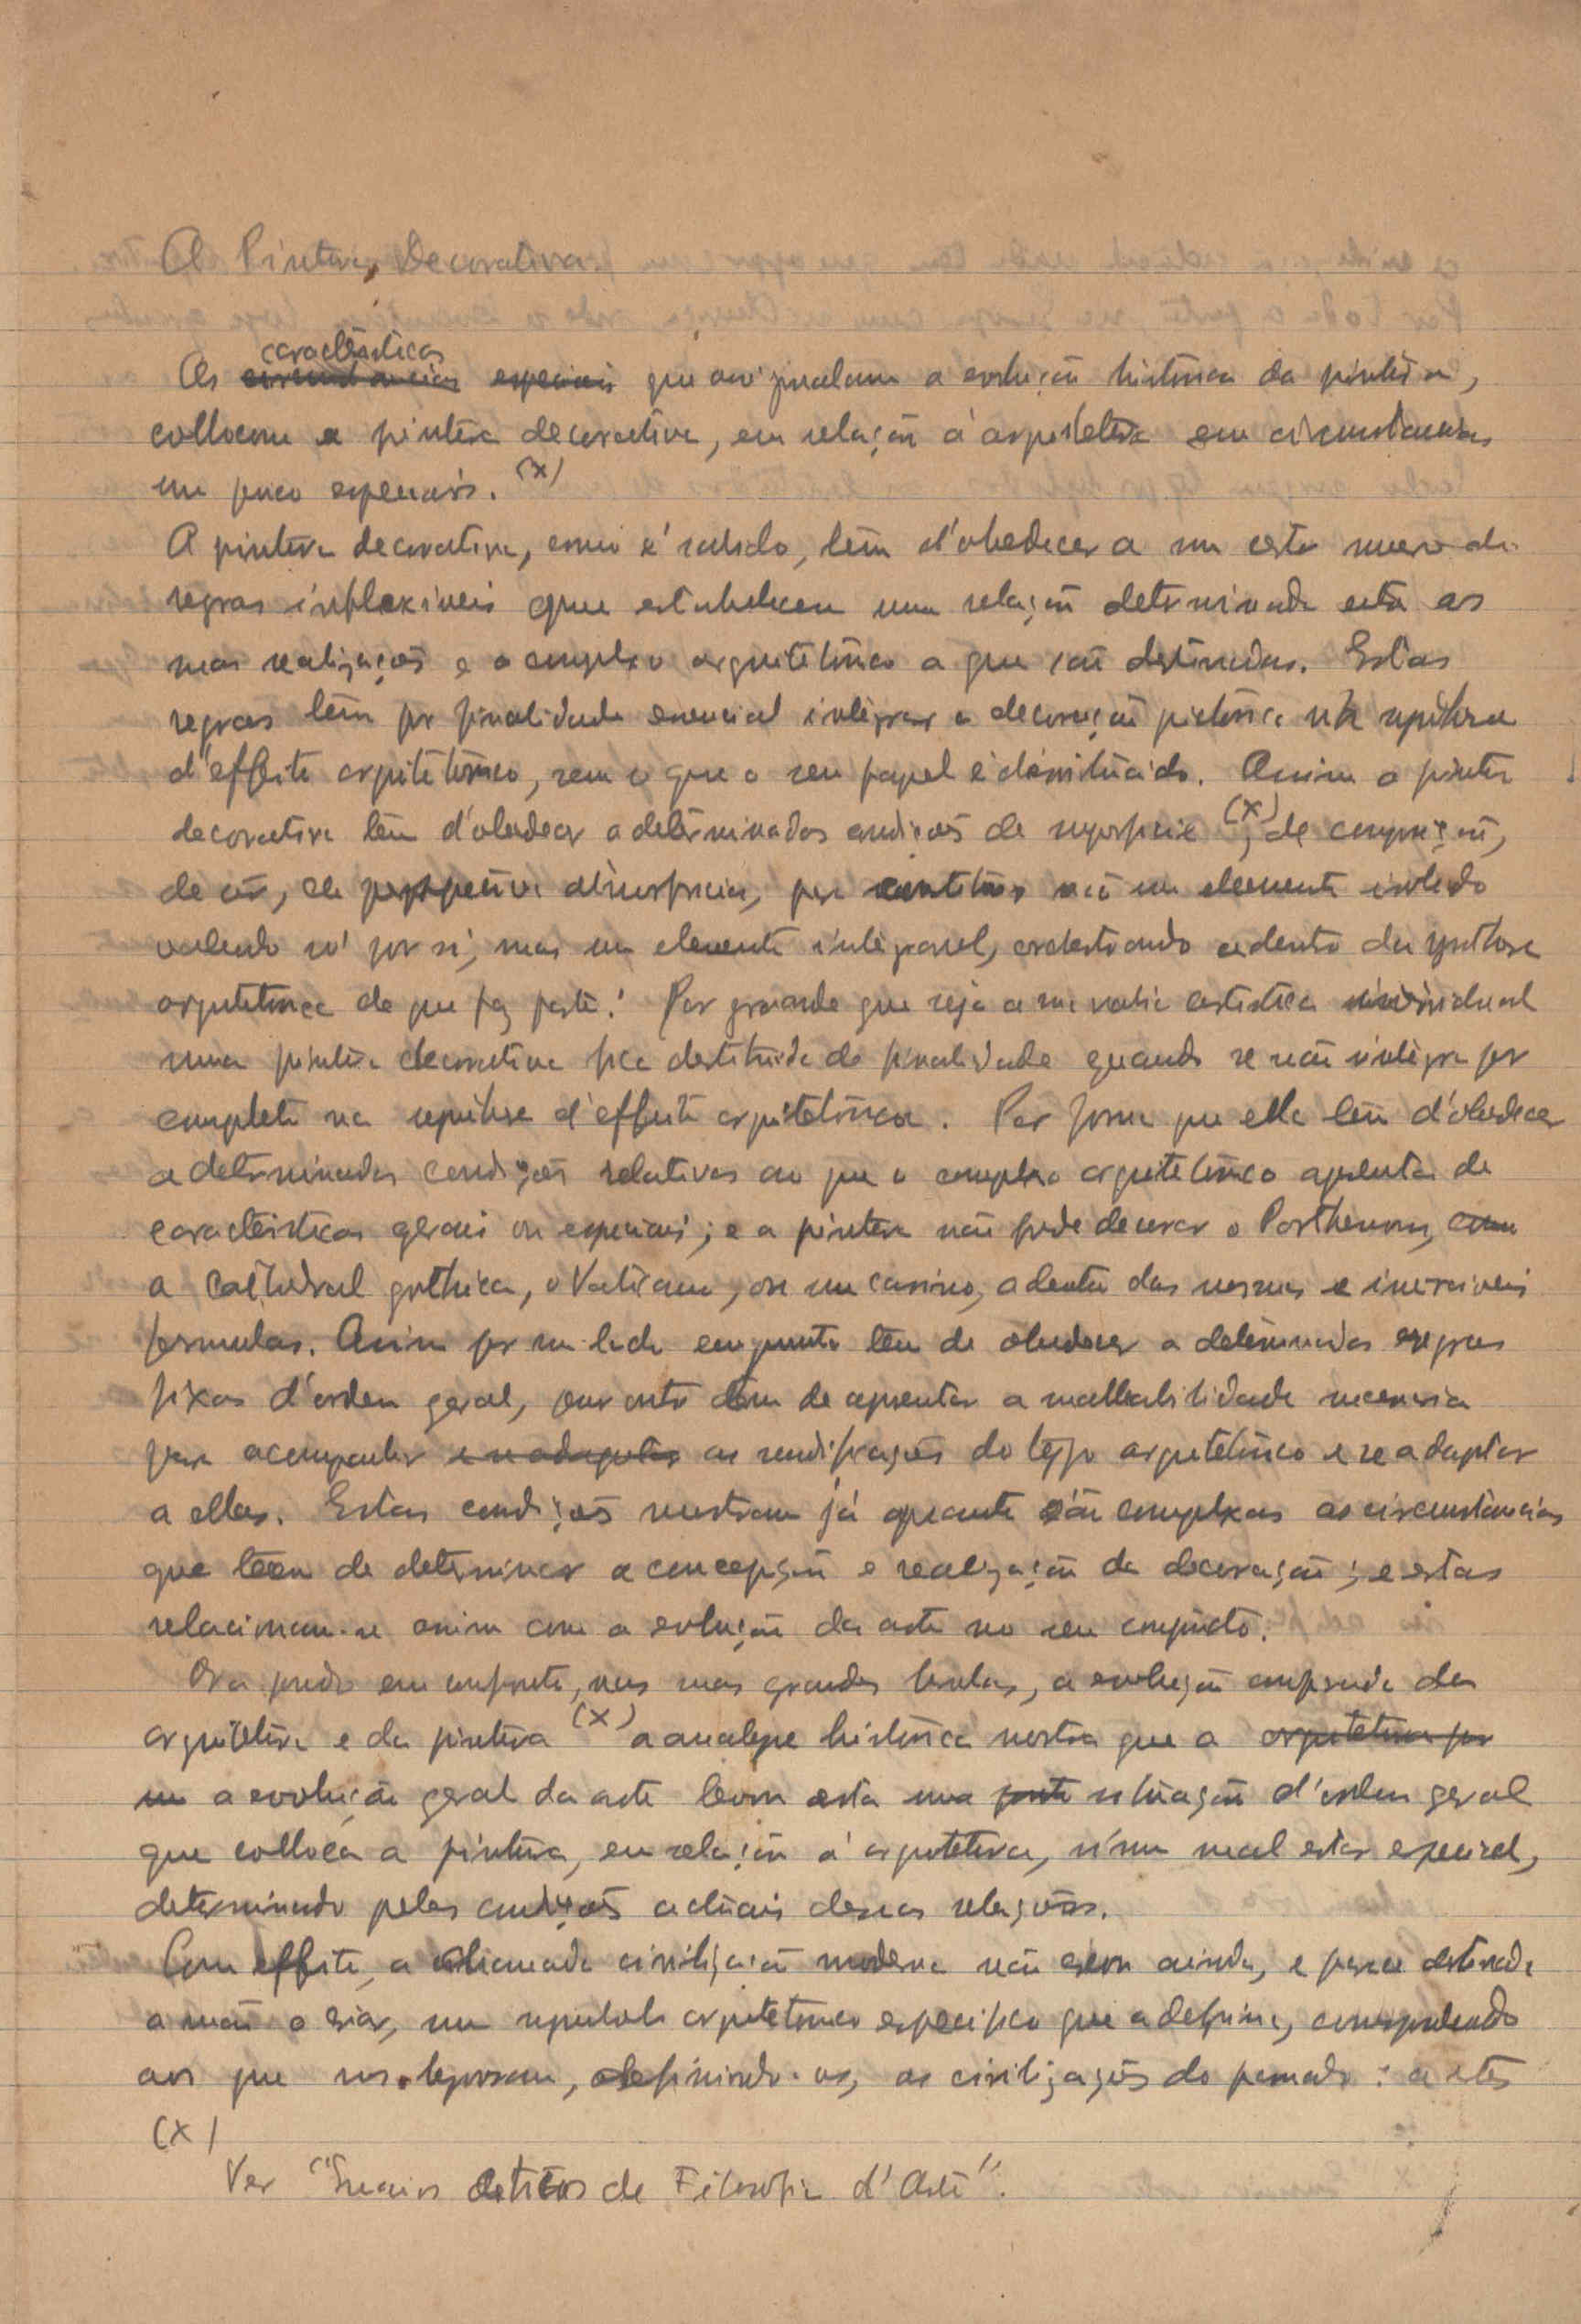 A Pintura Decorativa.
características
As circunstancias especiais que assignalam a evolução historica da pintura,
collocam a pintura decorativa, em relação á arquitetura em circunstancias
um pouco especiais. (X)
A pintura decorativa, como é sabido, têm d'obedecer a um certo numero de
regras inflexiveis que estabelecem uma relação determinada entre as
suas realizações e o complexo arquitetônico a que são destinadas. Estas
regras têm por finalidade essencial integrar a decoração pictórica na synthese
d'effeito arquitetônico, sem o que o seu papel é destituido. Assim a pintura
decorativa têm d'obedecer a determinadas condições de superficie (X), de composição,
de côr, de perspectiva, para constituir não um elemento isolado
valendo só por si, mas um elemento integravel, orchestrando adentro da synthese
arquitetonica de que faz parte. Por grande que seja a sua valia artistica individual
uma pintura decorativa fica destituida de finalidade quando se não integra por
completo na synthese d'effeito arquitetônico. Por forma que ella têm d'obedecer
a determinadas condições relativas ao que o complexo arquitetônico apresenta de
caracteristicas gerais ou especiais; e a pintura não pode decorar o Parthenon, como
a Cathedral gothica, o Vaticano, ou um casino, adentro das mesmas e
formulas. Assim por um lado emquanto têm de obedecer a determinadas regras
fixas d'ordem geral, por outro têm de apresentar a malleabilidade necessaria
para acompanhar e se adaptar as modificações do typo arquitetônico e se adaptar
a ellas. Estas condições mostram já quanto são complexas as circunstâncias
que têem de determinar a concepção e realização da decoração; e estas
relacionam-se assim com a evolução da arte no seu conjuncto.
Ora pondo em confronto, nas suas grandes linhas, a evolução comparada da
arquitetura e da pintura (X) a analyse histórica mostra que a arquitetura por
um a evolução geral da arte levou esta uma situação d'ordem geral
que colloca a pintura, em relação á arquitetura, n'um mal estar especial,
determinado pelas condições actuais dessas relações.
Com effeito, a chamada civilização moderna não creou ainda, e parece destinada
a não o criar, um symbolo arquitetonico especifico que a defina, correspondendo
aos que nos legaram, definindo-as, as civilizações do passado: a estes
(X)
Ver "Ensaios de Filosofia d'Arte".